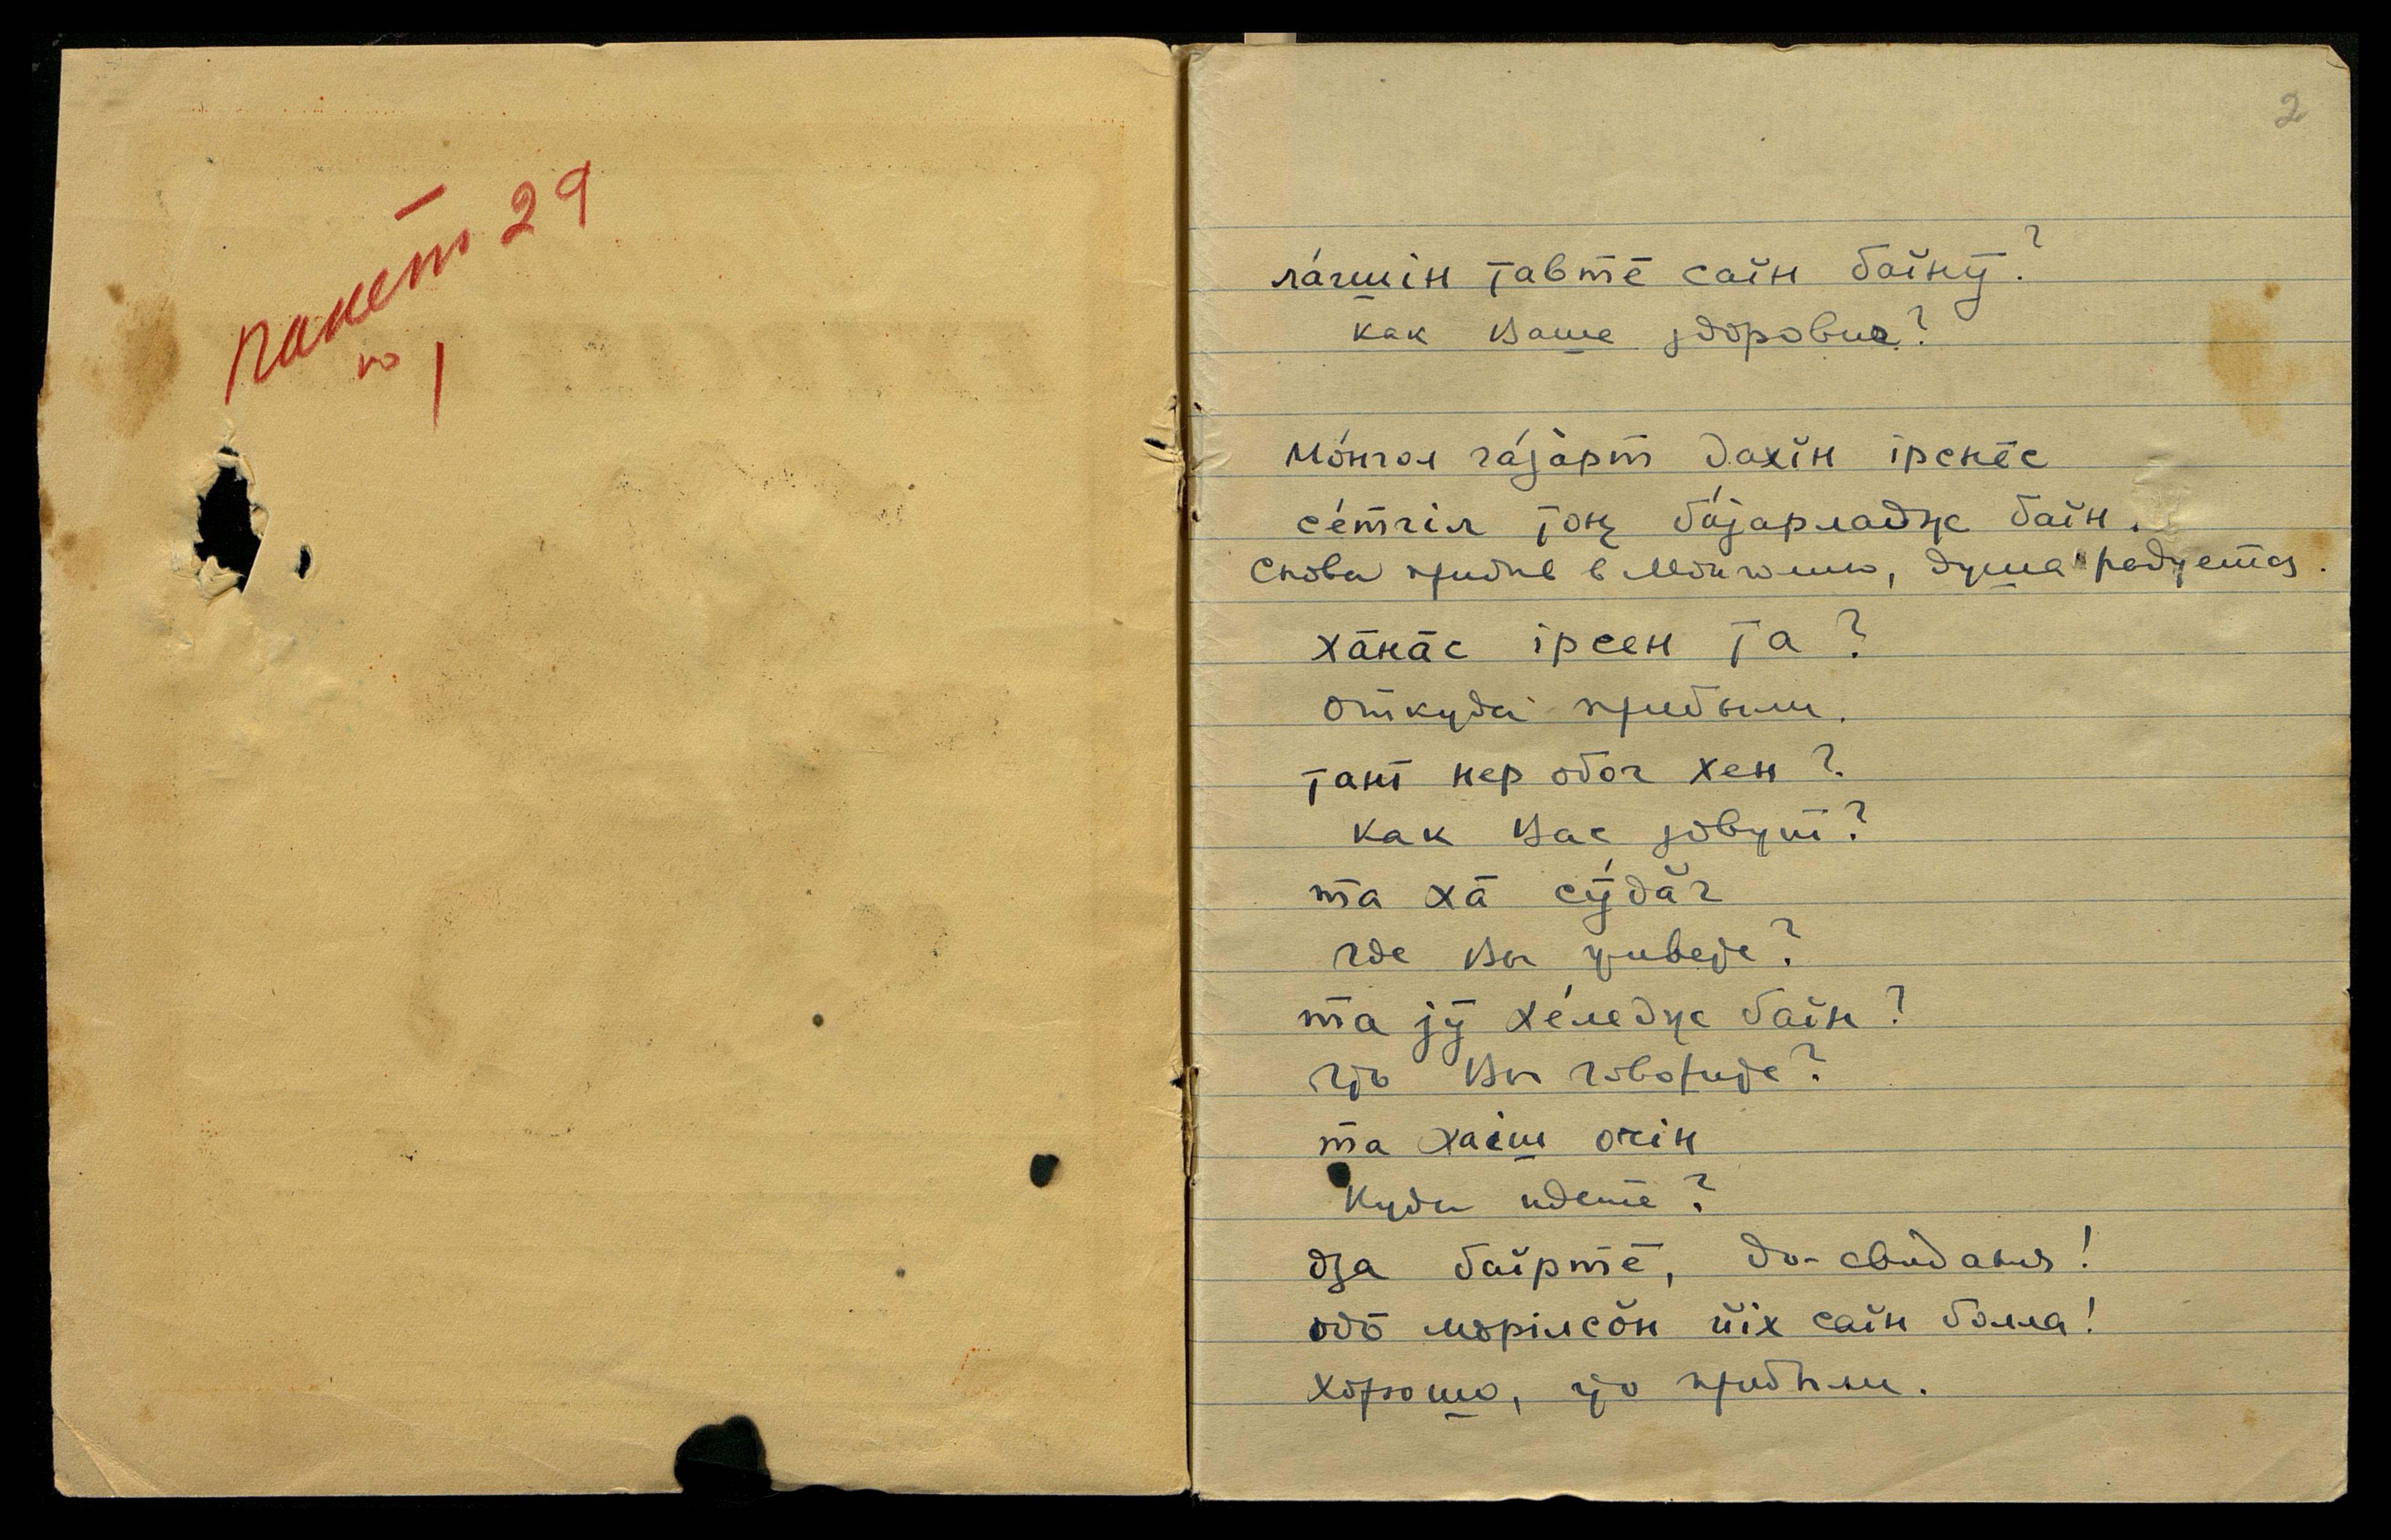 пакет 29
№ 1
2
лагшін тавтē саін баінӯ?
Как Ваше здоровие?
Монгол газарт дахін іренēс
сетгіл тон баjарладж баін.
Снова придя в Монголию, душа радуется.
хāнāс ірсен та?
откуда прибыли.
танī нер обог хен?
Как Вас зовут?
та хā сӯдāг
где Вы живете?
та jӯ хеледж баін?
что Вы говорите?
та хаіш очін
Куда идете?
дза баіртē, до-свиданья!
одō морілсōн іх саін болла!
хорошо, что прибыли.